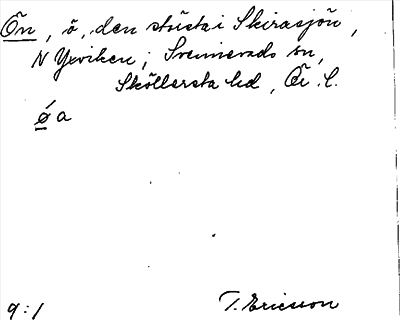 Ön, ö, den största i Skirasjön,
N Yxviken; Svennevads sn,
Sköllersta hd, Ör. l.
ǿa
9:1
T. Ericsson